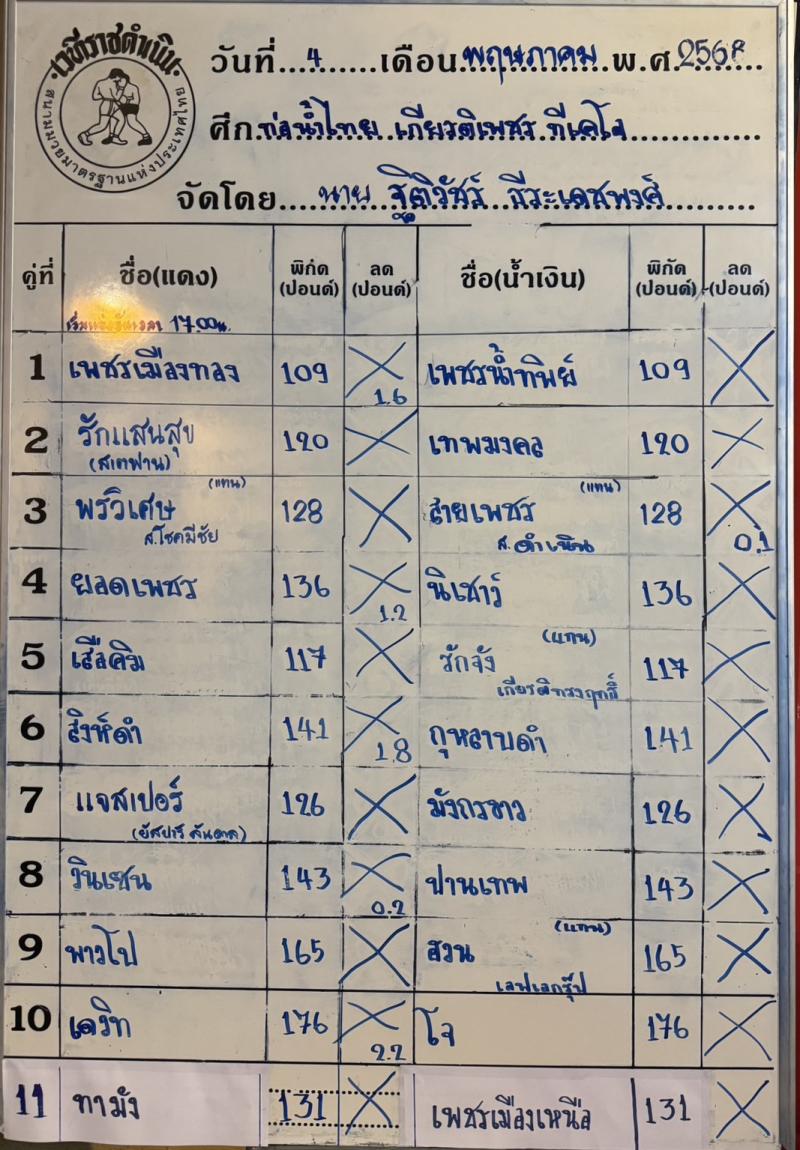 เวทีราชดำเนิน
สนามมวยมาตรฐานแห่งประเทศไทย
วันที่...4......เดือน.พฤษภาคม.พ.ศ.2568
ศึก.ท่อน้ำไทย เกียรติเพชร ทีเคโอ
จัดโดย....นาย ฐิติวัชร์ ธีระเดชพงศ์
คู่ที่ ชื่อ(แดง) พิกัด (ปอนด์) ลด (ปอนด์) ชื่อ(น้ำเงิน) พิกัด (ปอนด์) ลด (ปอนด์)
เริ่มแข่งขันเวลา 17.00น.
1 เพชรเมืองทอง 109 1.6 เพชรน้ำทิพย์ 109
2 รักแสนสุข 120 เทพมงคล 120
(สเตฟาน)
(แทน) (แทน)
3 พรวิเศษ 128 สายเพชร 128 0.1
ส.โชคมีชัย ส.ดำเนิน
4 ยอดเพชร 136 1.2 นิเชาว์ 136
(แทน)
5 เสือคิม 117 รักจัง 117
เกียรติทรงฤทธิ์
6 สิงห์ดำ 141 1.8 กุหลาบดำ 141
7 แจสเปอร์ 126 มังกรขาว 126
8 วินเซน 143 0.2 ปานเทพ 143
(แทน)
9 พาวโป 165 สวน 165
เลฟเอกรุ๊ป
10 เดวิท 176 2.2 โจ 176
11 ทามัง 131 เพชรเมืองเหนือ 131